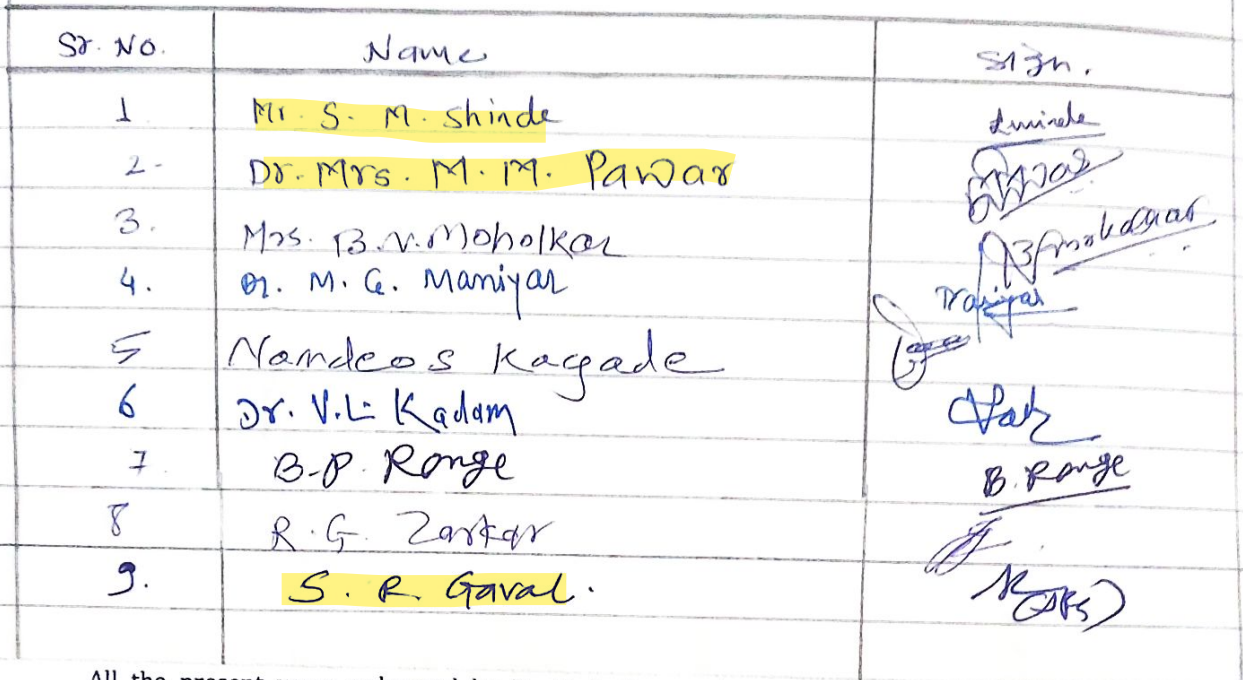 Sr. No. Name Sign.
1 Mr. S. M. Shinde
2- Dr. Mrs. M. M. Pawar
3. Mrs. B. V. Moholkar
4. Dr. M. G. Maniyar Maniyar
5 Namdeo S Kagade
6 Dr. V. L. Kadam
7. B. P. Ronge B. Ronge
8 R. G. Zarkar
9. S. R. Gaval.
All the present